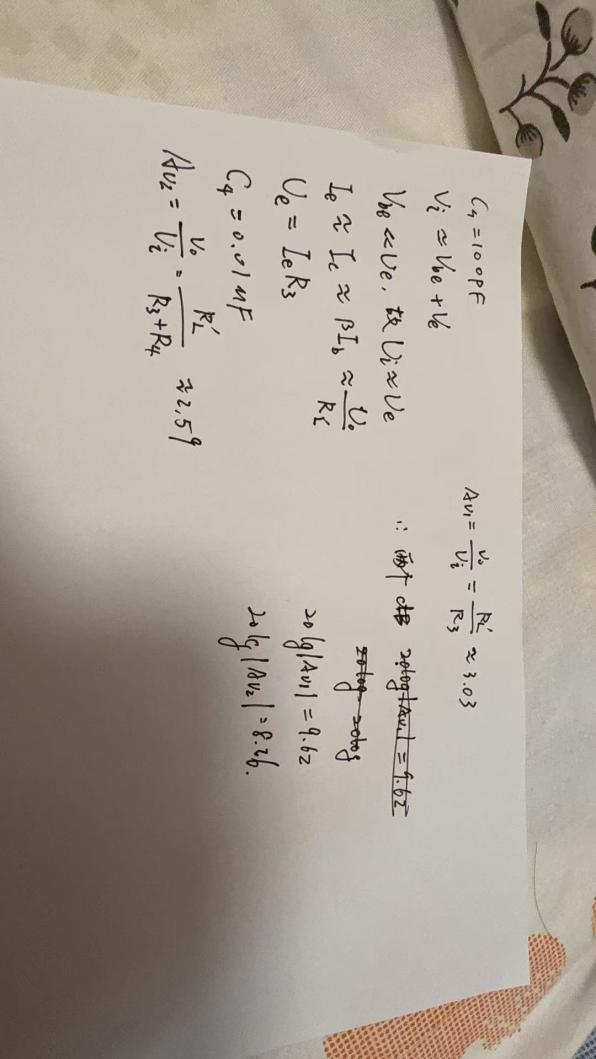 C₄=100PF
Vᵢ≈V_be+Vₑ
V_be≪Ue，故Uᵢ≈Ue
Iₑ≈I_c≈βI_b≈U₀/R'_L
Ue=IₑR₃
C₄=0.01μF
A_V2=V₀/Vᵢ=R'_L/(R₃+R₄)≈2.59
A_V1=V₀/Vᵢ=R'_L/R₃≈3.03
∴两个dB 20log|A_V1|=9.62
20log 20log
20lg|A_V1|=9.62
20lg|A_V2|=8.26.